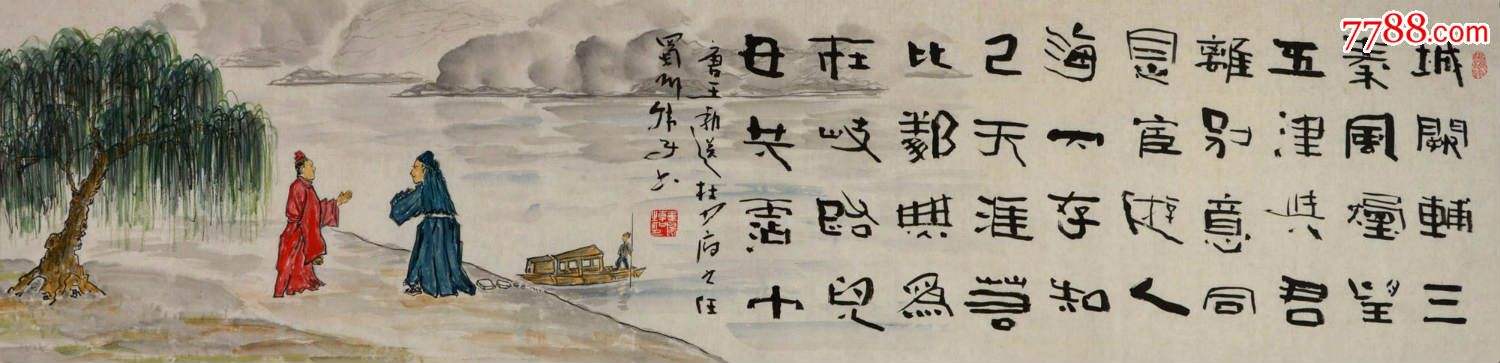 城闕輔三
秦風煙望
五津與君
離別意同
是宦遊人
海内存知
己天涯若
比鄰無為
在岐路兒
女共霑巾
唐王勃送杜少府之任
蜀州
7788.com